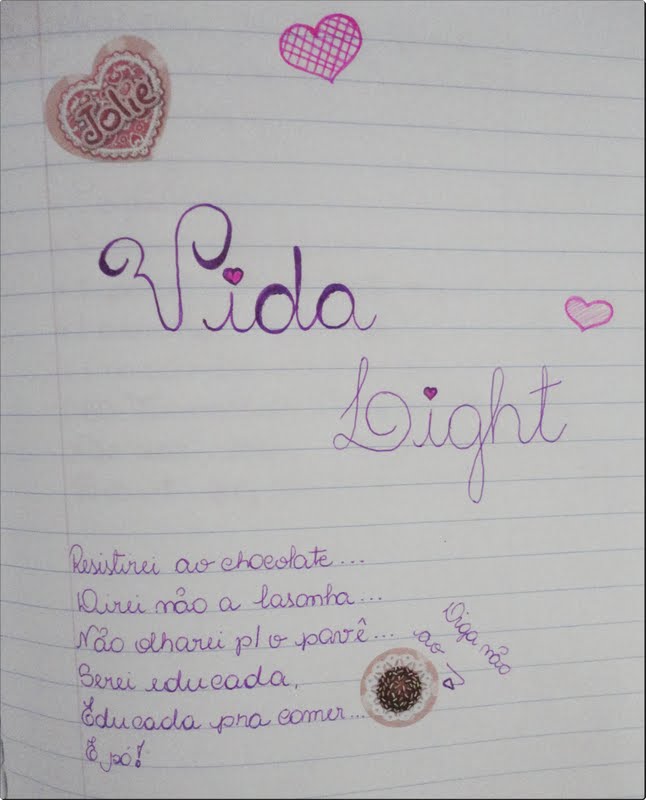 Jolie
Vida
Light
Resistirei ao chocolate...
Direi não a lasanha...
Não olharei p/ o pavê...
Serei educada,
Educada pra comer...
E pó!
Diga não
ao